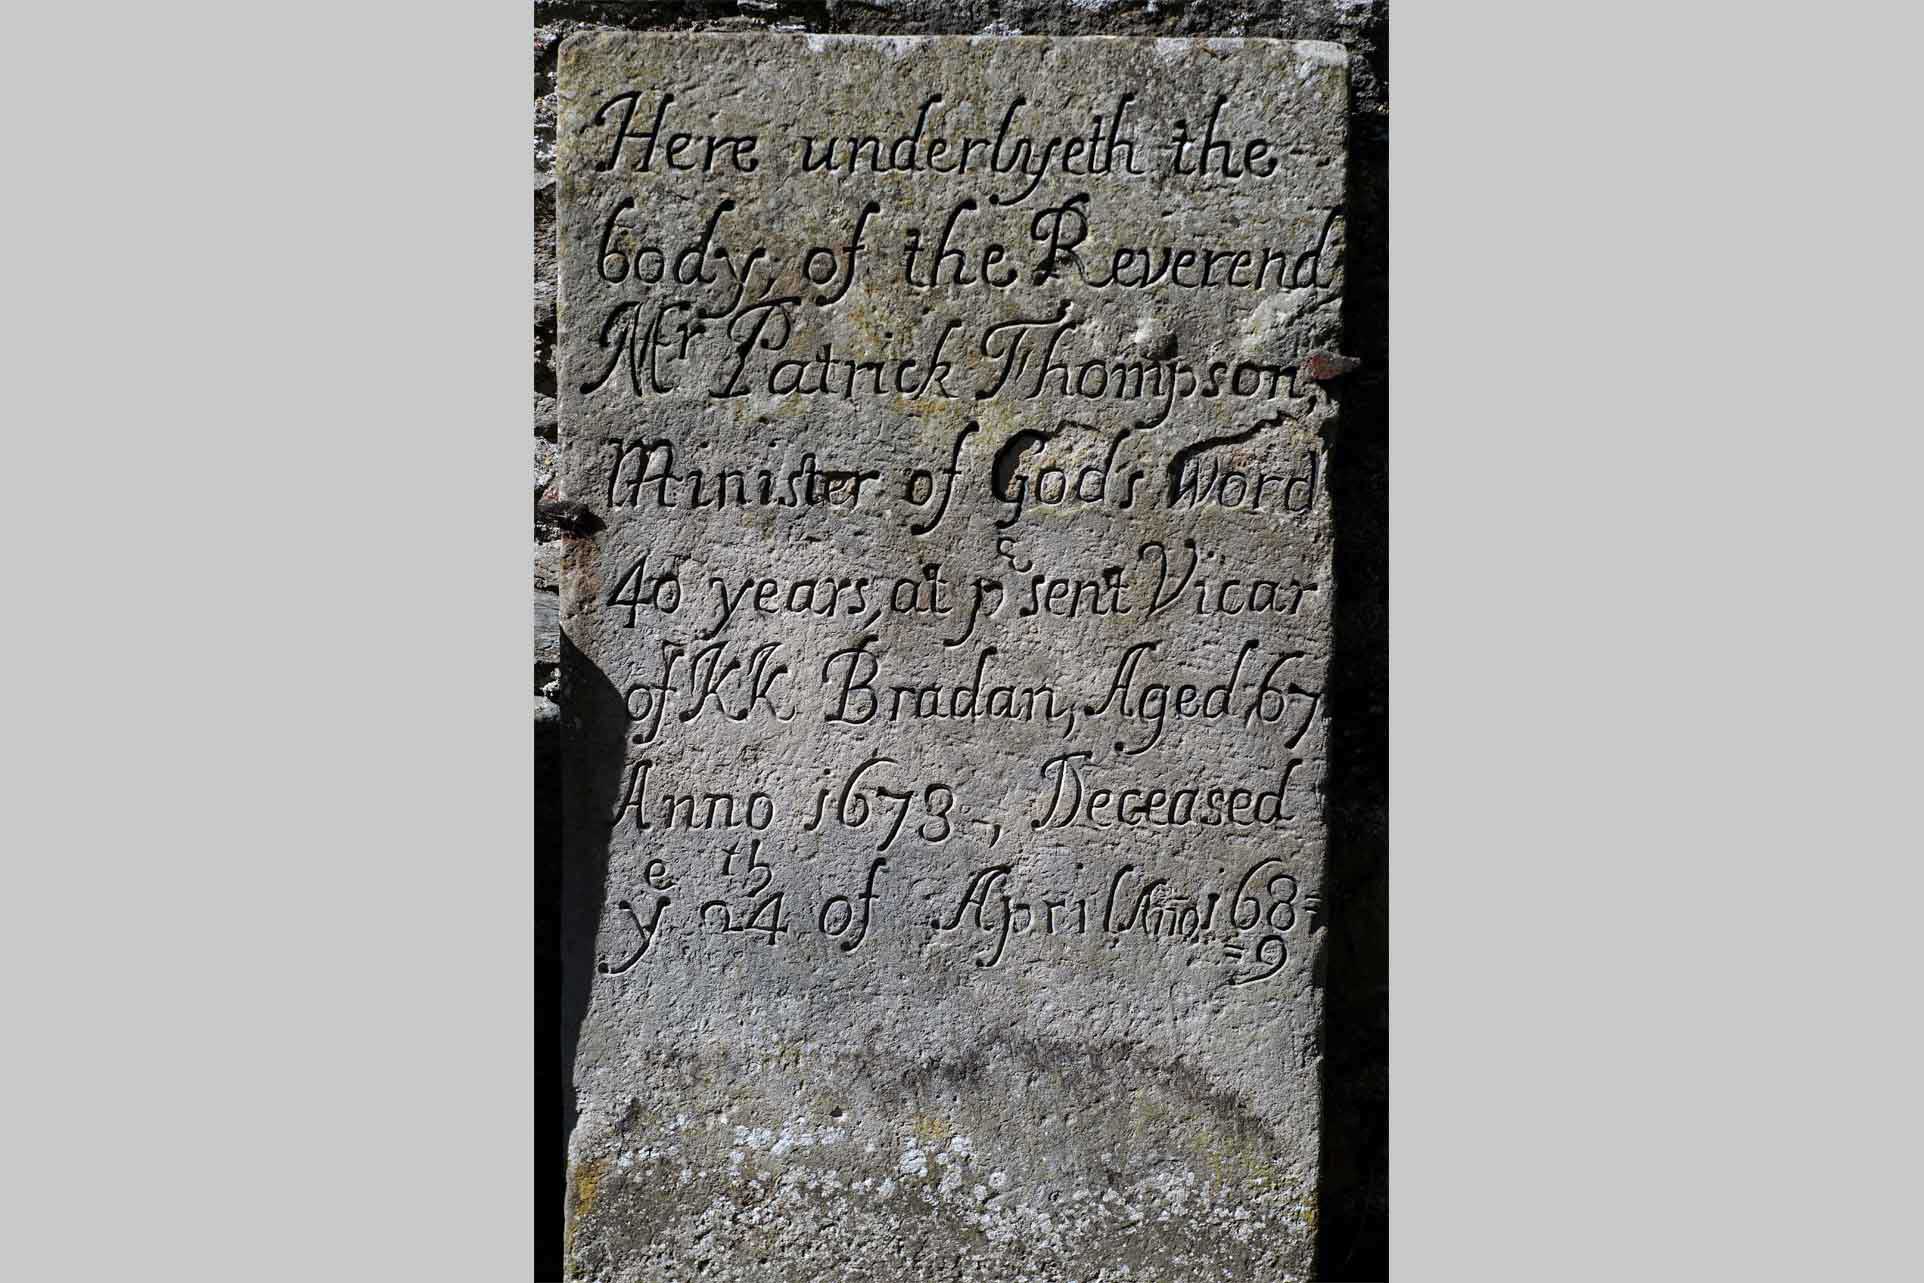 Here underlyeth the
body, of the Reverend
Mr Patrick Thompson,
Minister of God's Word
40 years, at psent Vicar
of KK Bradan, Aged 67
Anno 1673, Deceased
ye 24th of April Anno, 168=
=9